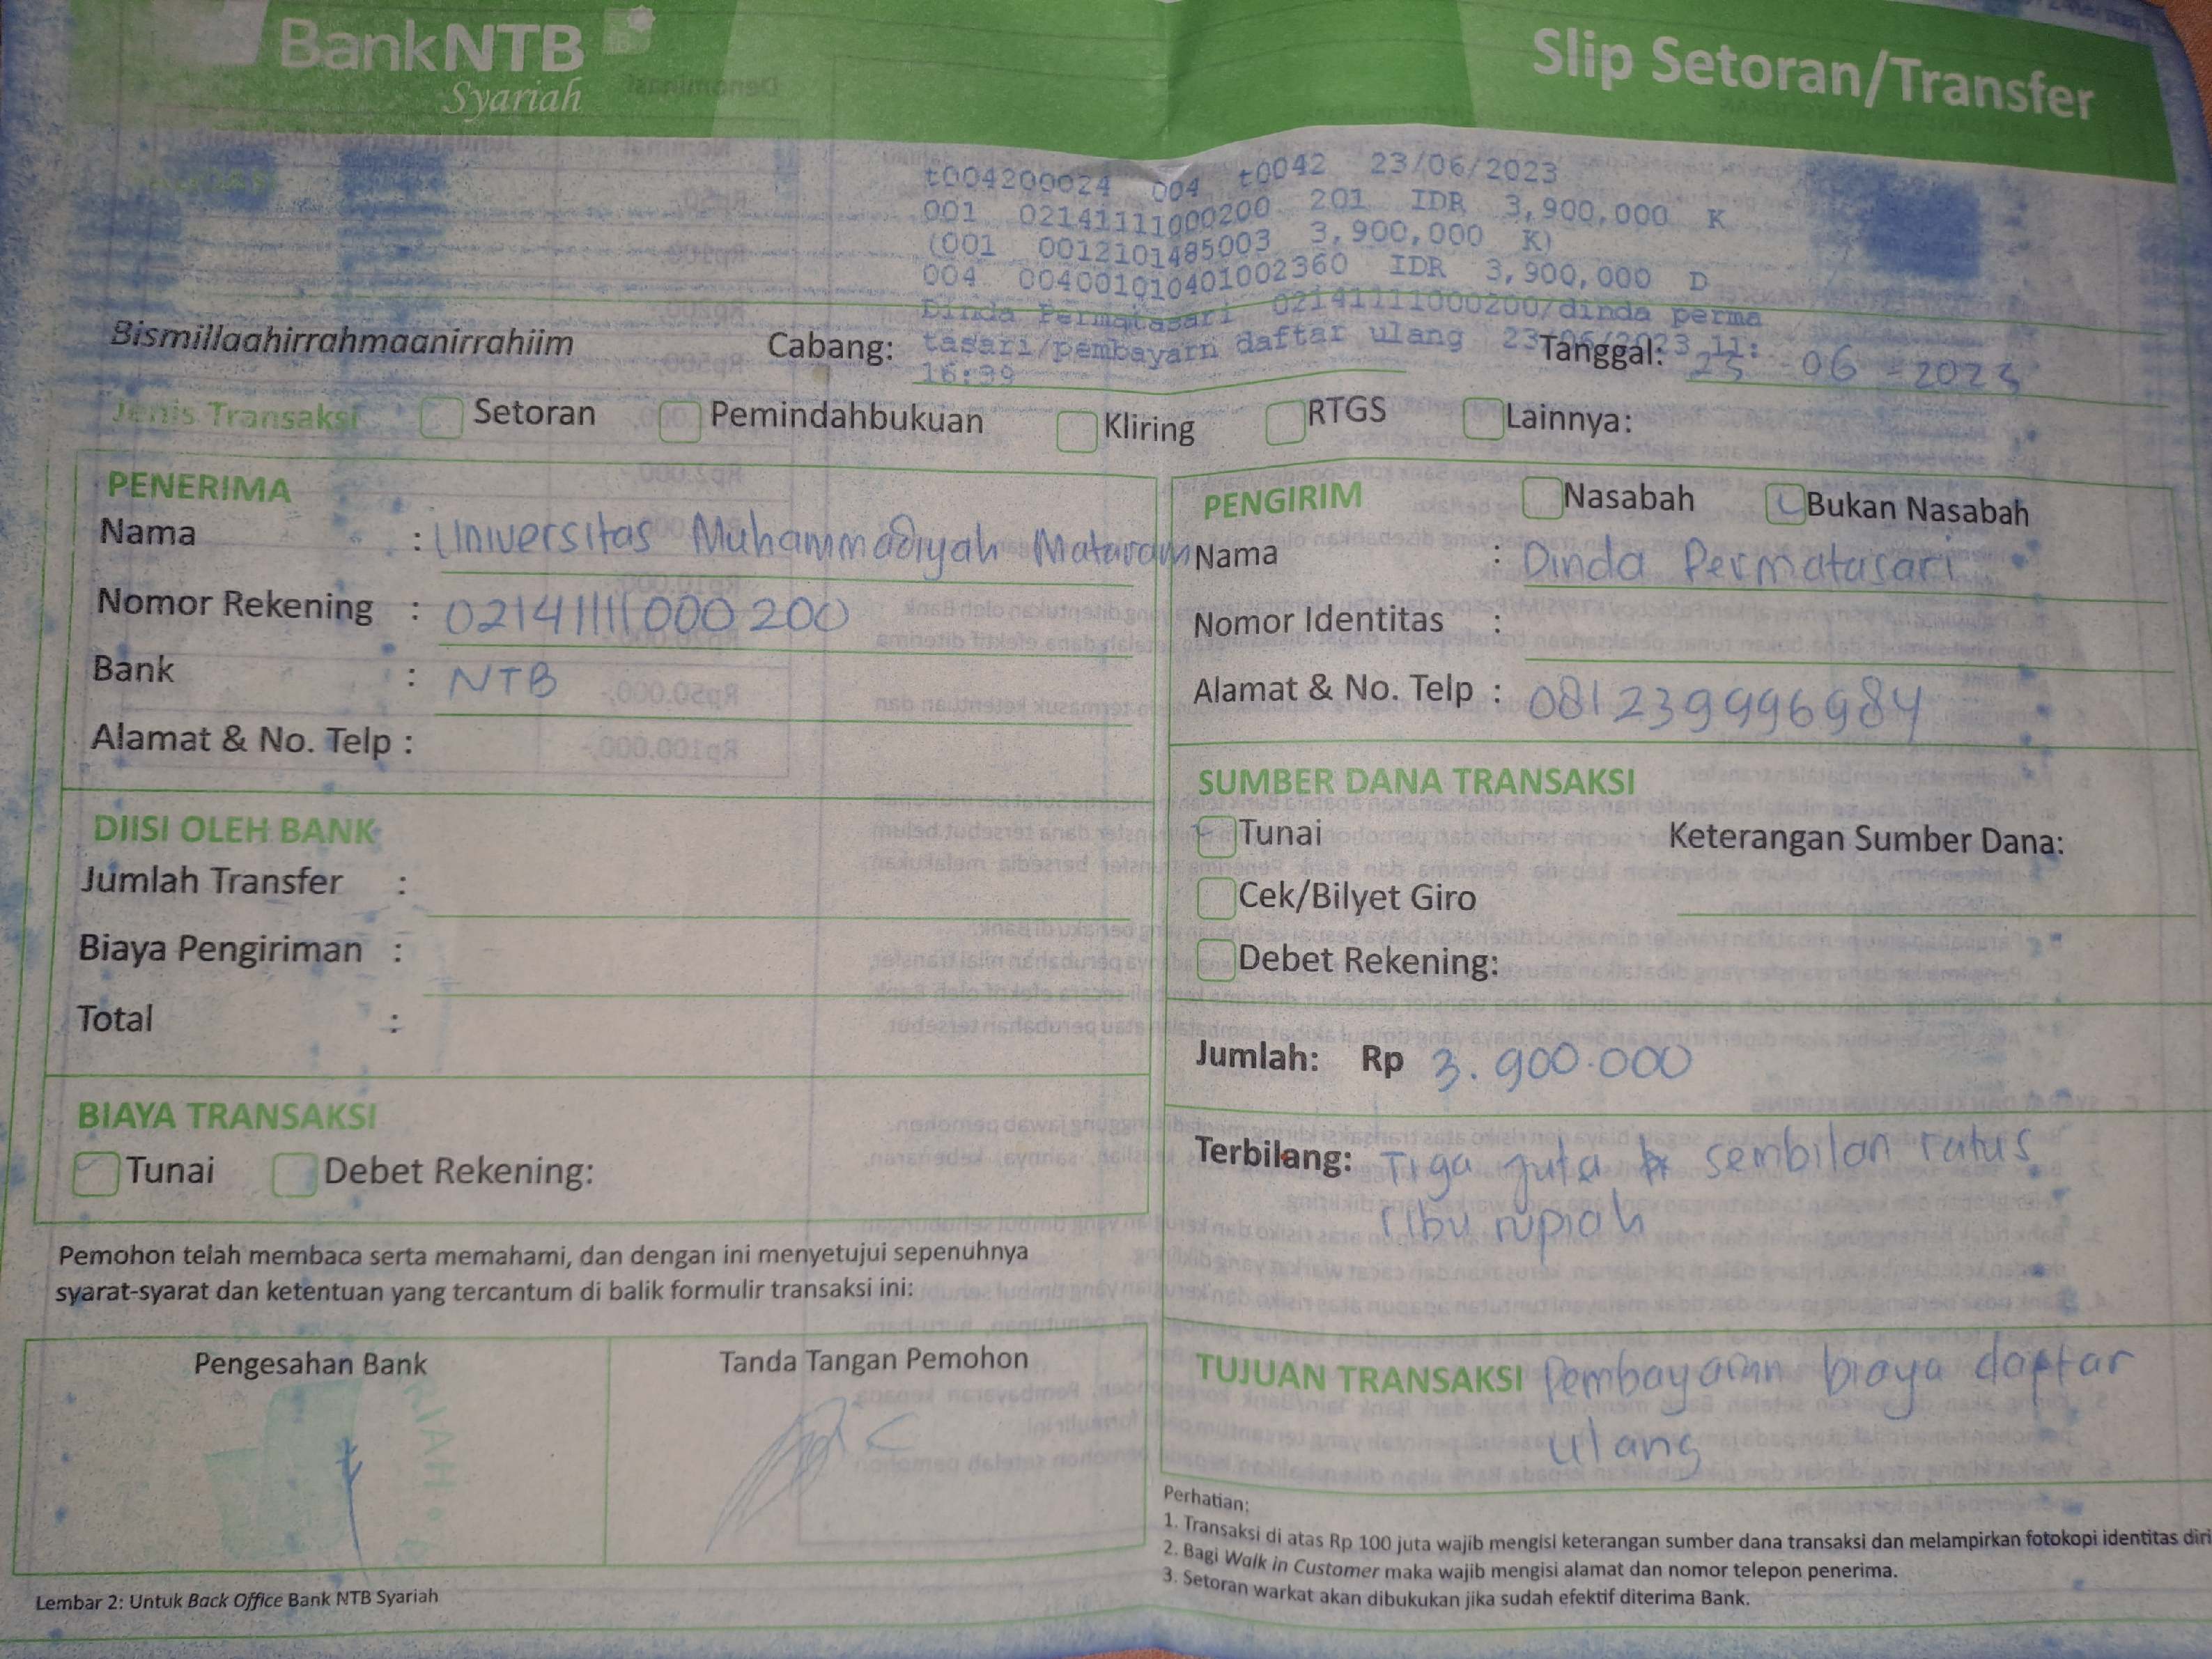 BankNTB
Syariah
Slip Setoran/Transfer
t004200024 004 t0042 23/06/2023
001 02141111000200 201 IDR 3,900,000 K
(001 0012101485003 3,900,000 K)
004 004001010401002360 IDR 3,900,000 D
Dinda Permatasari 02141111000200/dinda perma
tasari/pembayarn daftar ulang 23/06/2023 11:
16:39
Bismillaahirrahmaanirrahiim
Cabang:
Tanggal: 23 - 06 - 2023
Jenis Transaksi Setoran Pemindahbukuan Kliring RTGS Lainnya:
PENERIMA
Nama : Universitas Muhammadiyah Mataram
Nomor Rekening : 02141111000200
Bank : NTB
Alamat & No. Telp :
PENGIRIM Nasabah Bukan Nasabah
Nama : Dinda Permatasari
Nomor Identitas :
Alamat & No. Telp : 081239996984
DIISI OLEH BANK
Jumlah Transfer :
Biaya Pengiriman :
Total :
SUMBER DANA TRANSAKSI
Tunai Keterangan Sumber Dana:
Cek/Bilyet Giro
Debet Rekening:
Jumlah: Rp 3.900.000
BIAYA TRANSAKSI
Tunai Debet Rekening:
Terbilang: Tiga juta sembilan ratus
ribu rupiah
Pemohon telah membaca serta memahami, dan dengan ini menyetujui sepenuhnya
syarat-syarat dan ketentuan yang tercantum di balik formulir transaksi ini:
Pengesahan Bank
Tanda Tangan Pemohon
TUJUAN TRANSAKSI Pembayaran biaya daftar
ulang
Perhatian:
1. Transaksi di atas Rp 100 juta wajib mengisi keterangan sumber dana transaksi dan melampirkan fotokopi identitas diri
2. Bagi Walk in Customer maka wajib mengisi alamat dan nomor telepon penerima.
3. Setoran warkat akan dibukukan jika sudah efektif diterima Bank.
Lembar 2: Untuk Back Office Bank NTB Syariah